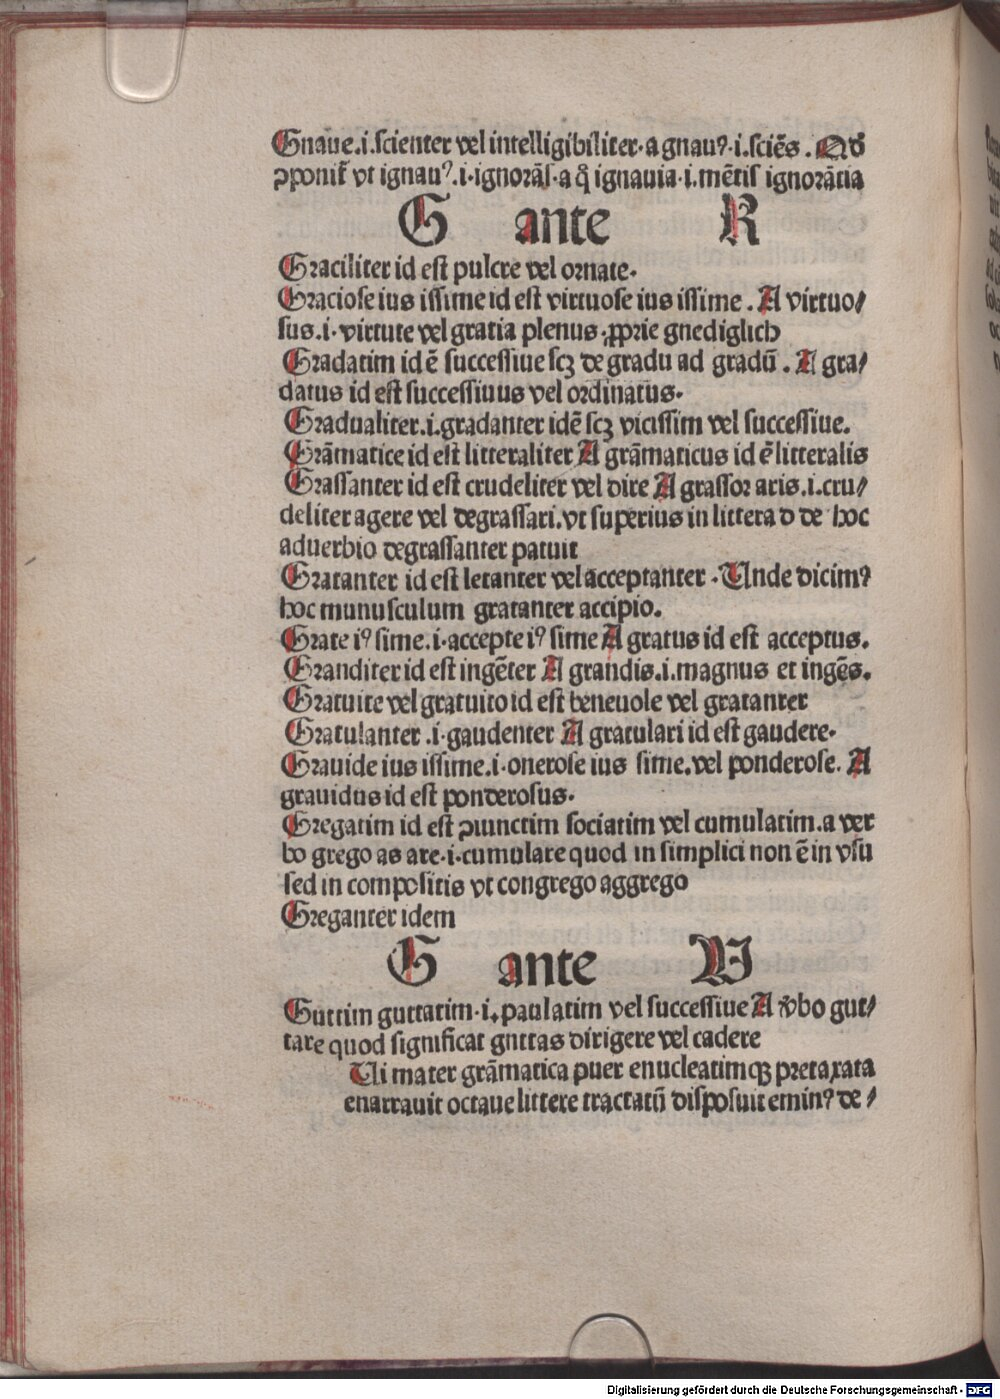 Gnaue.i.scienter vel intelligibiliter.a gnauꝰ.i.sciẽs. Qđ
ꝓponit᷑ vt ignauꝰ.i.ignorãs.a q̊ ignauia.i.mẽtis ignorãtia
G ante R
Graciliter id est pulcre vel ornate.
Graciose ius issime id est virtuose ius issime. A virtuo/
sus.i.virtute vel gratia plenus.ꝓprie gnediglich
Gradatim id ẽ successiue scꝫ de gradu ad gradũ. A gra/
datus id est successiuus vel ordinatus.
Gradualiter.i.gradanter idẽ scꝫ vicissim vel successiue.
Grãmatice id est litteraliter A grãmaticus id ẽ litteralis
Grassanter id est crudeliter vel dire A grassor aris.i.cru/
deliter agere vel degrassari.vt superius in littera d de hoc
aduerbio degrassanter patuit
Gratanter id est letanter vel acceptanter. Unde dicimꝰ
hoc munusculum gratanter accipio.
Grate iꝰ sime.i.accepte iꝰ sime A gratus id est acceptus.
Granditer id est ingẽter A grandis.i.magnus et ingẽs.
Gratuite vel gratuito id est beneuole vel gratanter
Gratulanter.i.gaudenter A gratulari id est gaudere.
Grauide ius issime.i.onerose ius sime.vel ponderose. A
grauidus id est ponderosus.
Gregatim id est ꝯiunctim sociatim vel cumulatim.a ver
bo grego as are.i.cumulare quod in simplici non ẽ in vsu
sed in compositis vt congrego aggrego
Greganter idem
G ante U
Guttim guttatim.i.paulatim vel successiue A v̓bo gut/
tare quod significat guttas dirigere vel cadere
Ui mater grãmatica puer enucleatimqꝫ pretaxata
enarrauit octaue littere tractatũ disposuit eminꝰ de/
Digitalisierung gefördert durch die Deutsche Forschungsgemeinschaft - DFG